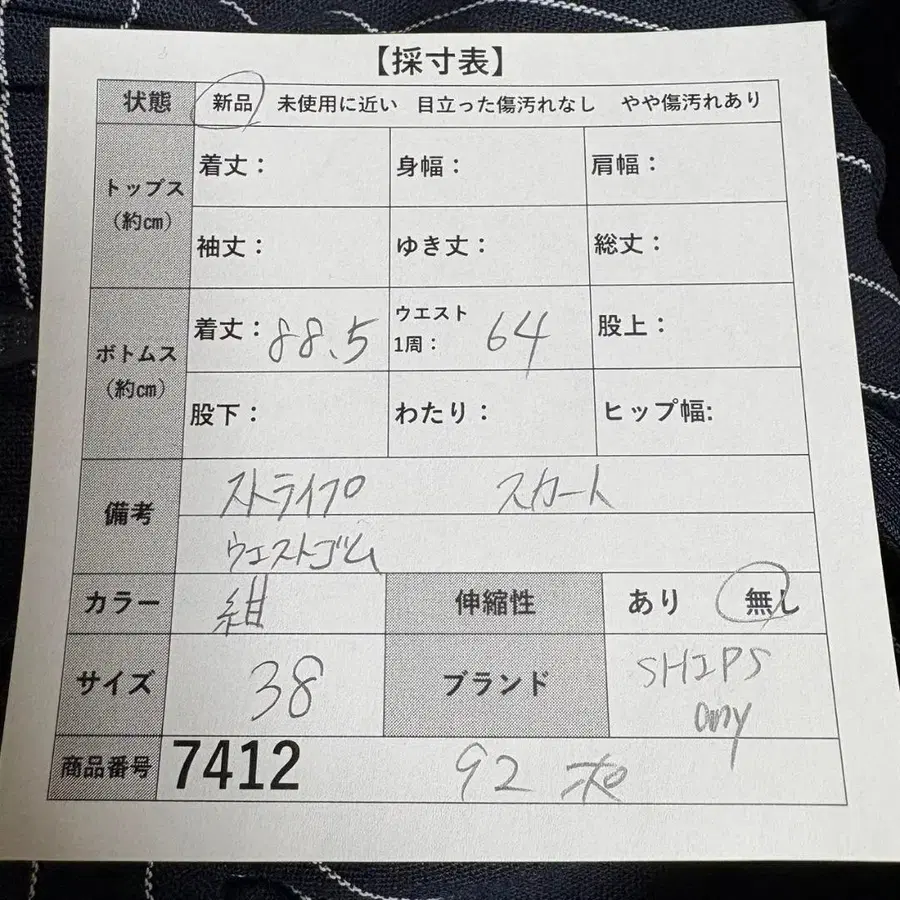 【採寸表】
状態 新品 未使用に近い 目立った傷汚れなし やや傷汚れあり
トップス（約㎝）
着丈： 身幅： 肩幅：
袖丈： ゆき丈： 総丈：
ボトムス（約㎝）
着丈：88.5 ウエスト1周：64 股上：
股下： わたり： ヒップ幅:
備考 ストライプ スカート
ウエストゴム
カラー 紺 伸縮性 あり 無し
サイズ 38 ブランド SHIPS any
商品番号 7412 92 ポ